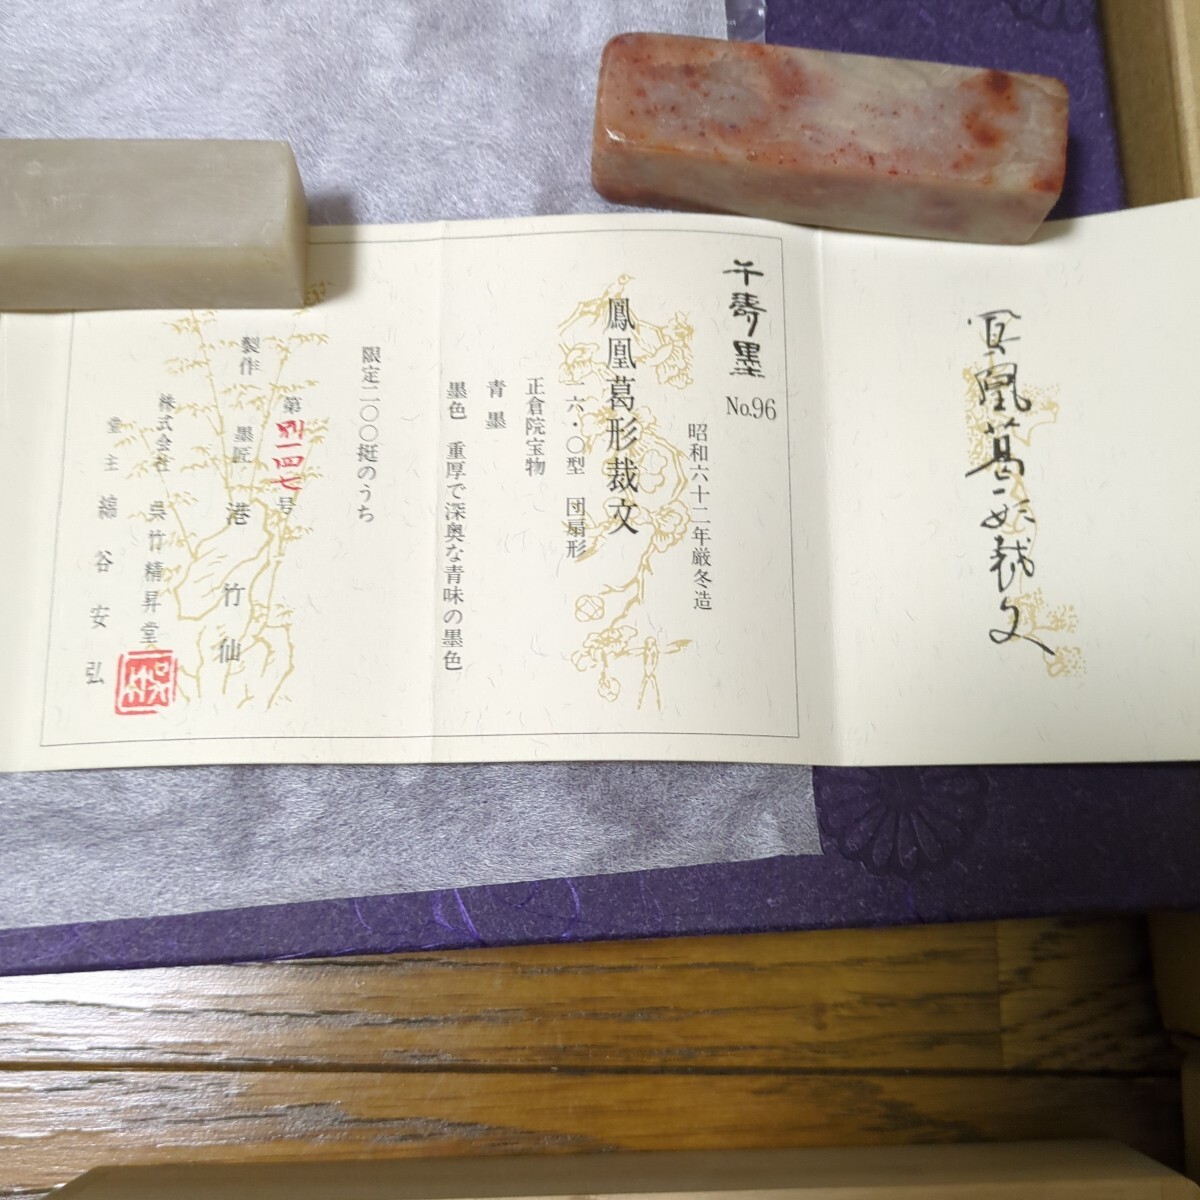 鳳凰葛形裁文
千壽墨
No.96
昭和六十二年厳冬造
鳳凰葛形裁文
一六・〇型 団扇形
正倉院宝物
青墨
墨色 重厚で深奥な青味の墨色
限定二〇〇挺のうち
第別一四七号
製作 墨匠 港竹仙
株式会社 呉竹精昇堂
堂主 綿谷安弘